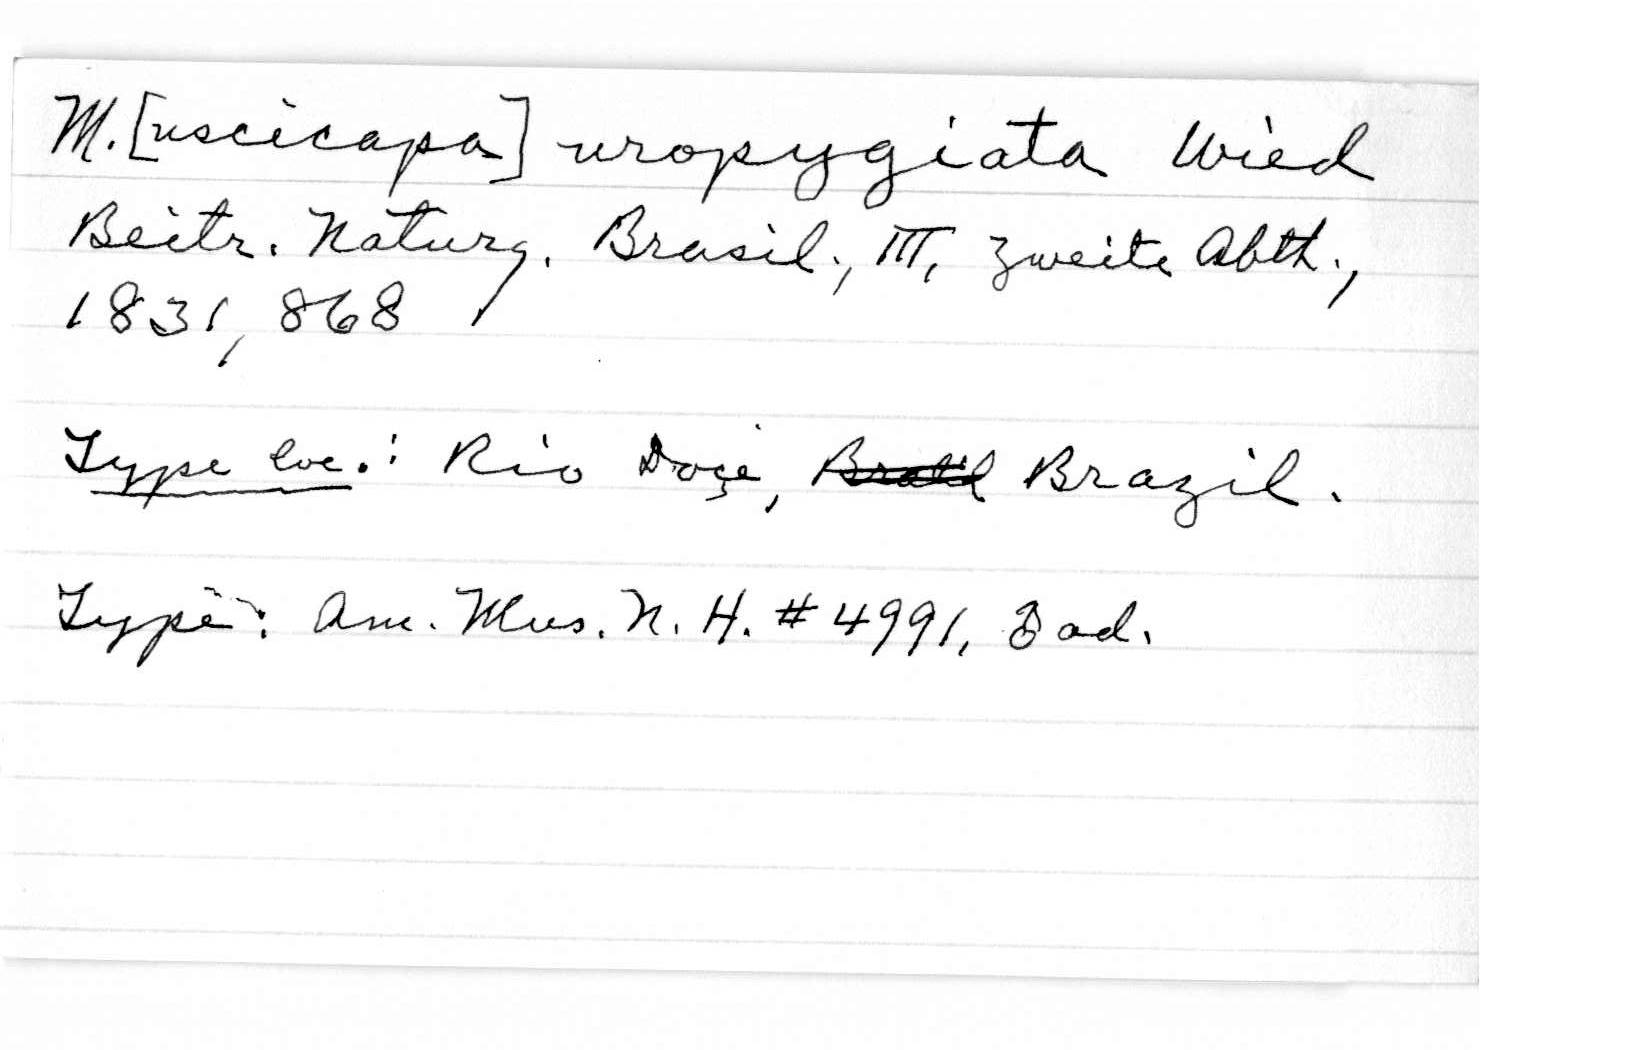 M.[uscicapa] uropygiata Wied
Beitr. Naturg. Brasil., III, Zweite Abth.,
1831, 868
Type loc.: Rio Doçe, Brazil.
Type: Am. Mus. N. H. #4991, ad.